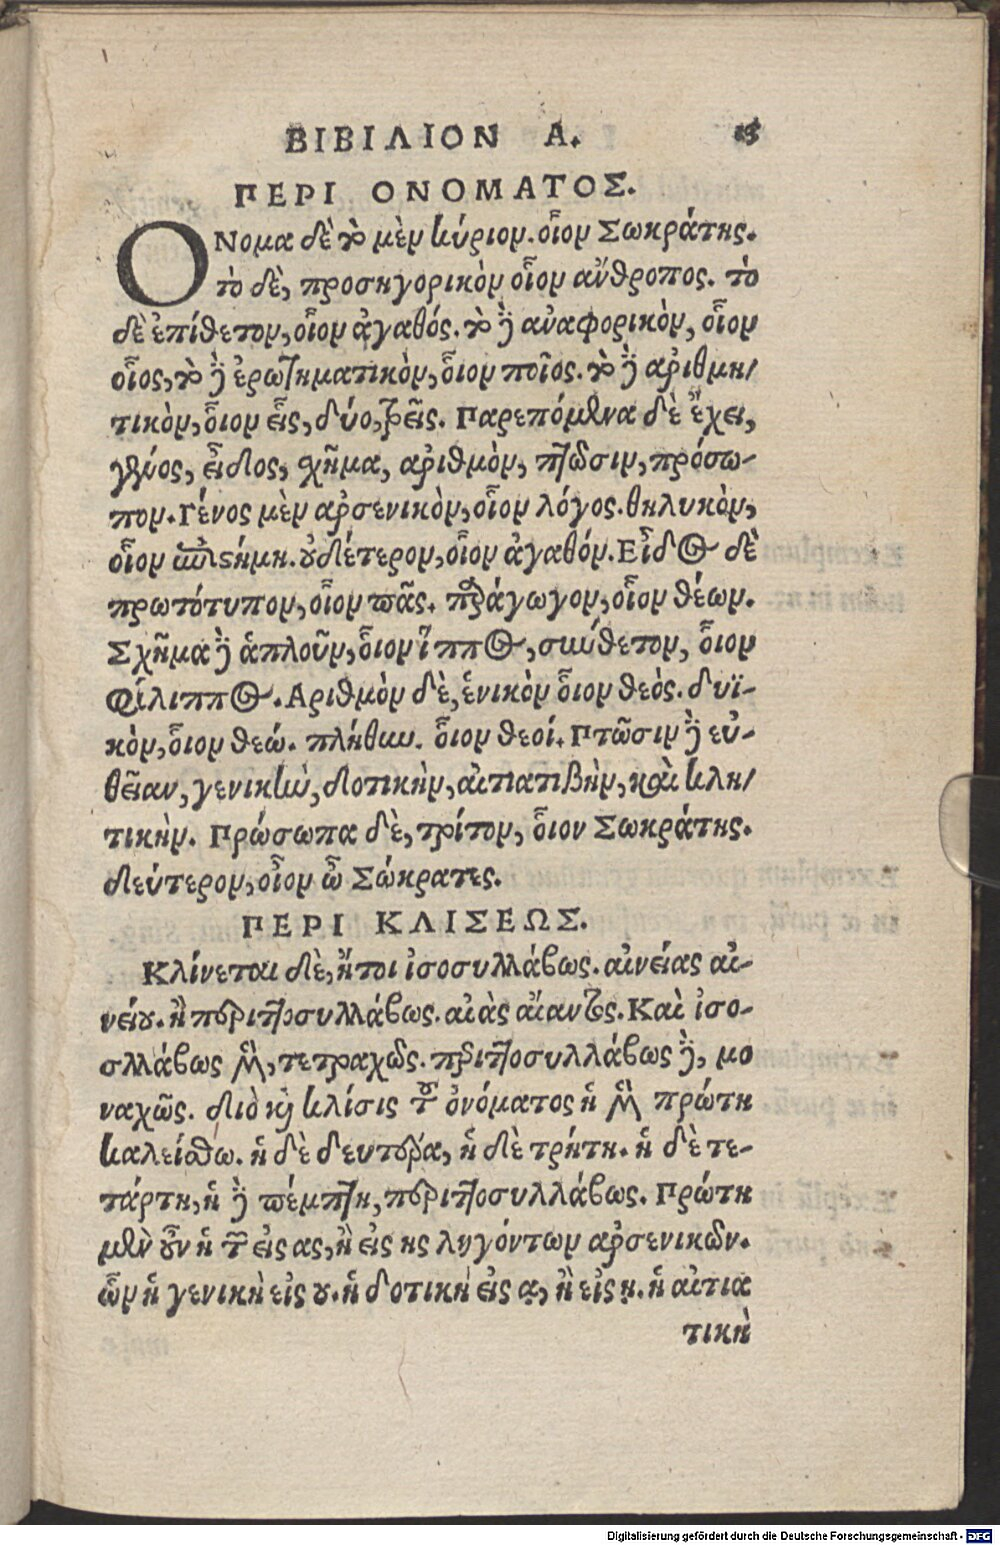 ΒΙΒΙΛΙΟΝ Α. 15
ΠΕΡΙ ΟΝΟΜΑΤΟΣ.
ΟΝομα δὲ τὸ μὲν κύριον. οἷον Σωκράτης.
τὸ δὲ, προσηγορικὸν οἷον ἄνθροπος. τὸ
δὲ ἐπίθετον, οἷον ἀγαθός. τὸ δὲ ἀναφορικὸν, οἷον
οἷος, τὸ δὲ ἐρωτηματικὸν, οἷον ποῖος. τὸ δὲ ἀριθμη/
τικὸν, οἷον εἷς, δύο, τρεῖς. Παρεπόμενα δὲ ἔχει,
γένος, εἶδος, σχῆμα, ἀριθμὸν, πτῶσιν, πρόσω-
πον. Γένος μὲν ἀρσενικὸν, οἷον λόγος. θηλυκὸν,
οἷον ἐπιστήμη. οὐδέτερον, οἷον ἀγαθόν. Εἶδος δὲ
πρωτότυπον, οἷον πᾶς. παράγωγον, οἷον θέων.
Σχῆμα δὲ ἁπλοῦν, οἷον ἵππος, σύνθετον, οἷον
Φίλιππος. Αριθμὸν δὲ, ἑνικὸν οἷον θεὸς. δυϊ-
κὸν, οἷον θεώ. πλήθυν. οἷον θεοί. Πτῶσιν δὲ εὐ-
θεῖαν, γενικὴν, δοτικὴν, αἰτιατικὴν, καὶ κλη/
τικὴν. Πρώσωπα δὲ, τρίτον, οἷον Σωκράτης.
δεύτερον, οἷον ὦ Σώκρατες.
ΠΕΡΙ ΚΛΙΣΕΩΣ.
Κλίνεται δὲ, ἤτοι ἰσοσυλλάβως. αἰνείας αἰ-
νείου. ἢ περιττοσυλλάβως. αἰὰς αἴαντος. Καὶ ἰσο-
σλλάβως μὲν, τετραχῶς. περιττοσυλλάβως δὲ, μο
ναχῶς. διὸ καὶ κλίσις τοῦ ὀνόματος ἡ μὲν πρώτη
καλείσθω. ἡ δὲ δευτέρα, ἡ δὲ τρήτη. ἡ δὲ τε-
τάρτη, ἡ δὲ πέμπτη, περιττοσυλλάβως. Πρώτη
μὲν οὖν ἡ τῶν εἰς ας, ἢ εἰς ης ληγόντων ἀρσενικῶν.
ὧν ἡ γενικὴ εἰς ου. ἡ δοτικὴ εἰς ᾳ, ἢ εἰς ῃ. ἡ αἰτια
τικὴ
Digitalisierung gefördert durch die Deutsche Forschungsgemeinschaft - DFG